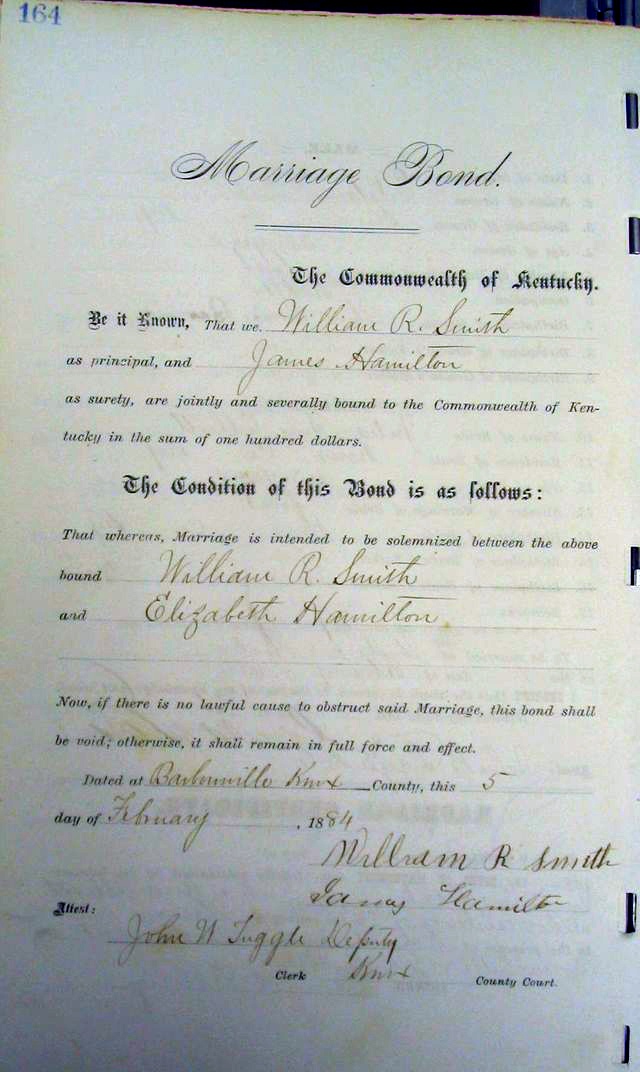 164
Marriage Bond.
The Commonwealth of Kentucky.
Be it Known, That we. William R. Smith
as principal, and James Hamilton
as surety, are jointly and severally bound to the Commonwealth of Ken-
tucky in the sum of one hundred dollars.
The Condition of this Bond is as follows:
That whereas, Marriage is intended to be solemnized between the above
bound William R. Smith
and Elizabeth Hamilton
Now, if there is no lawful cause to obstruct said Marriage, this bond shall
be void; otherwise, it shall remain in full force and effect.
Dated at Barbourville Knox County, this 5
day of February, 1884
William R Smith
James Hamilton
Attest:
John W Tuggle Deputy
Clerk Knox County Court.